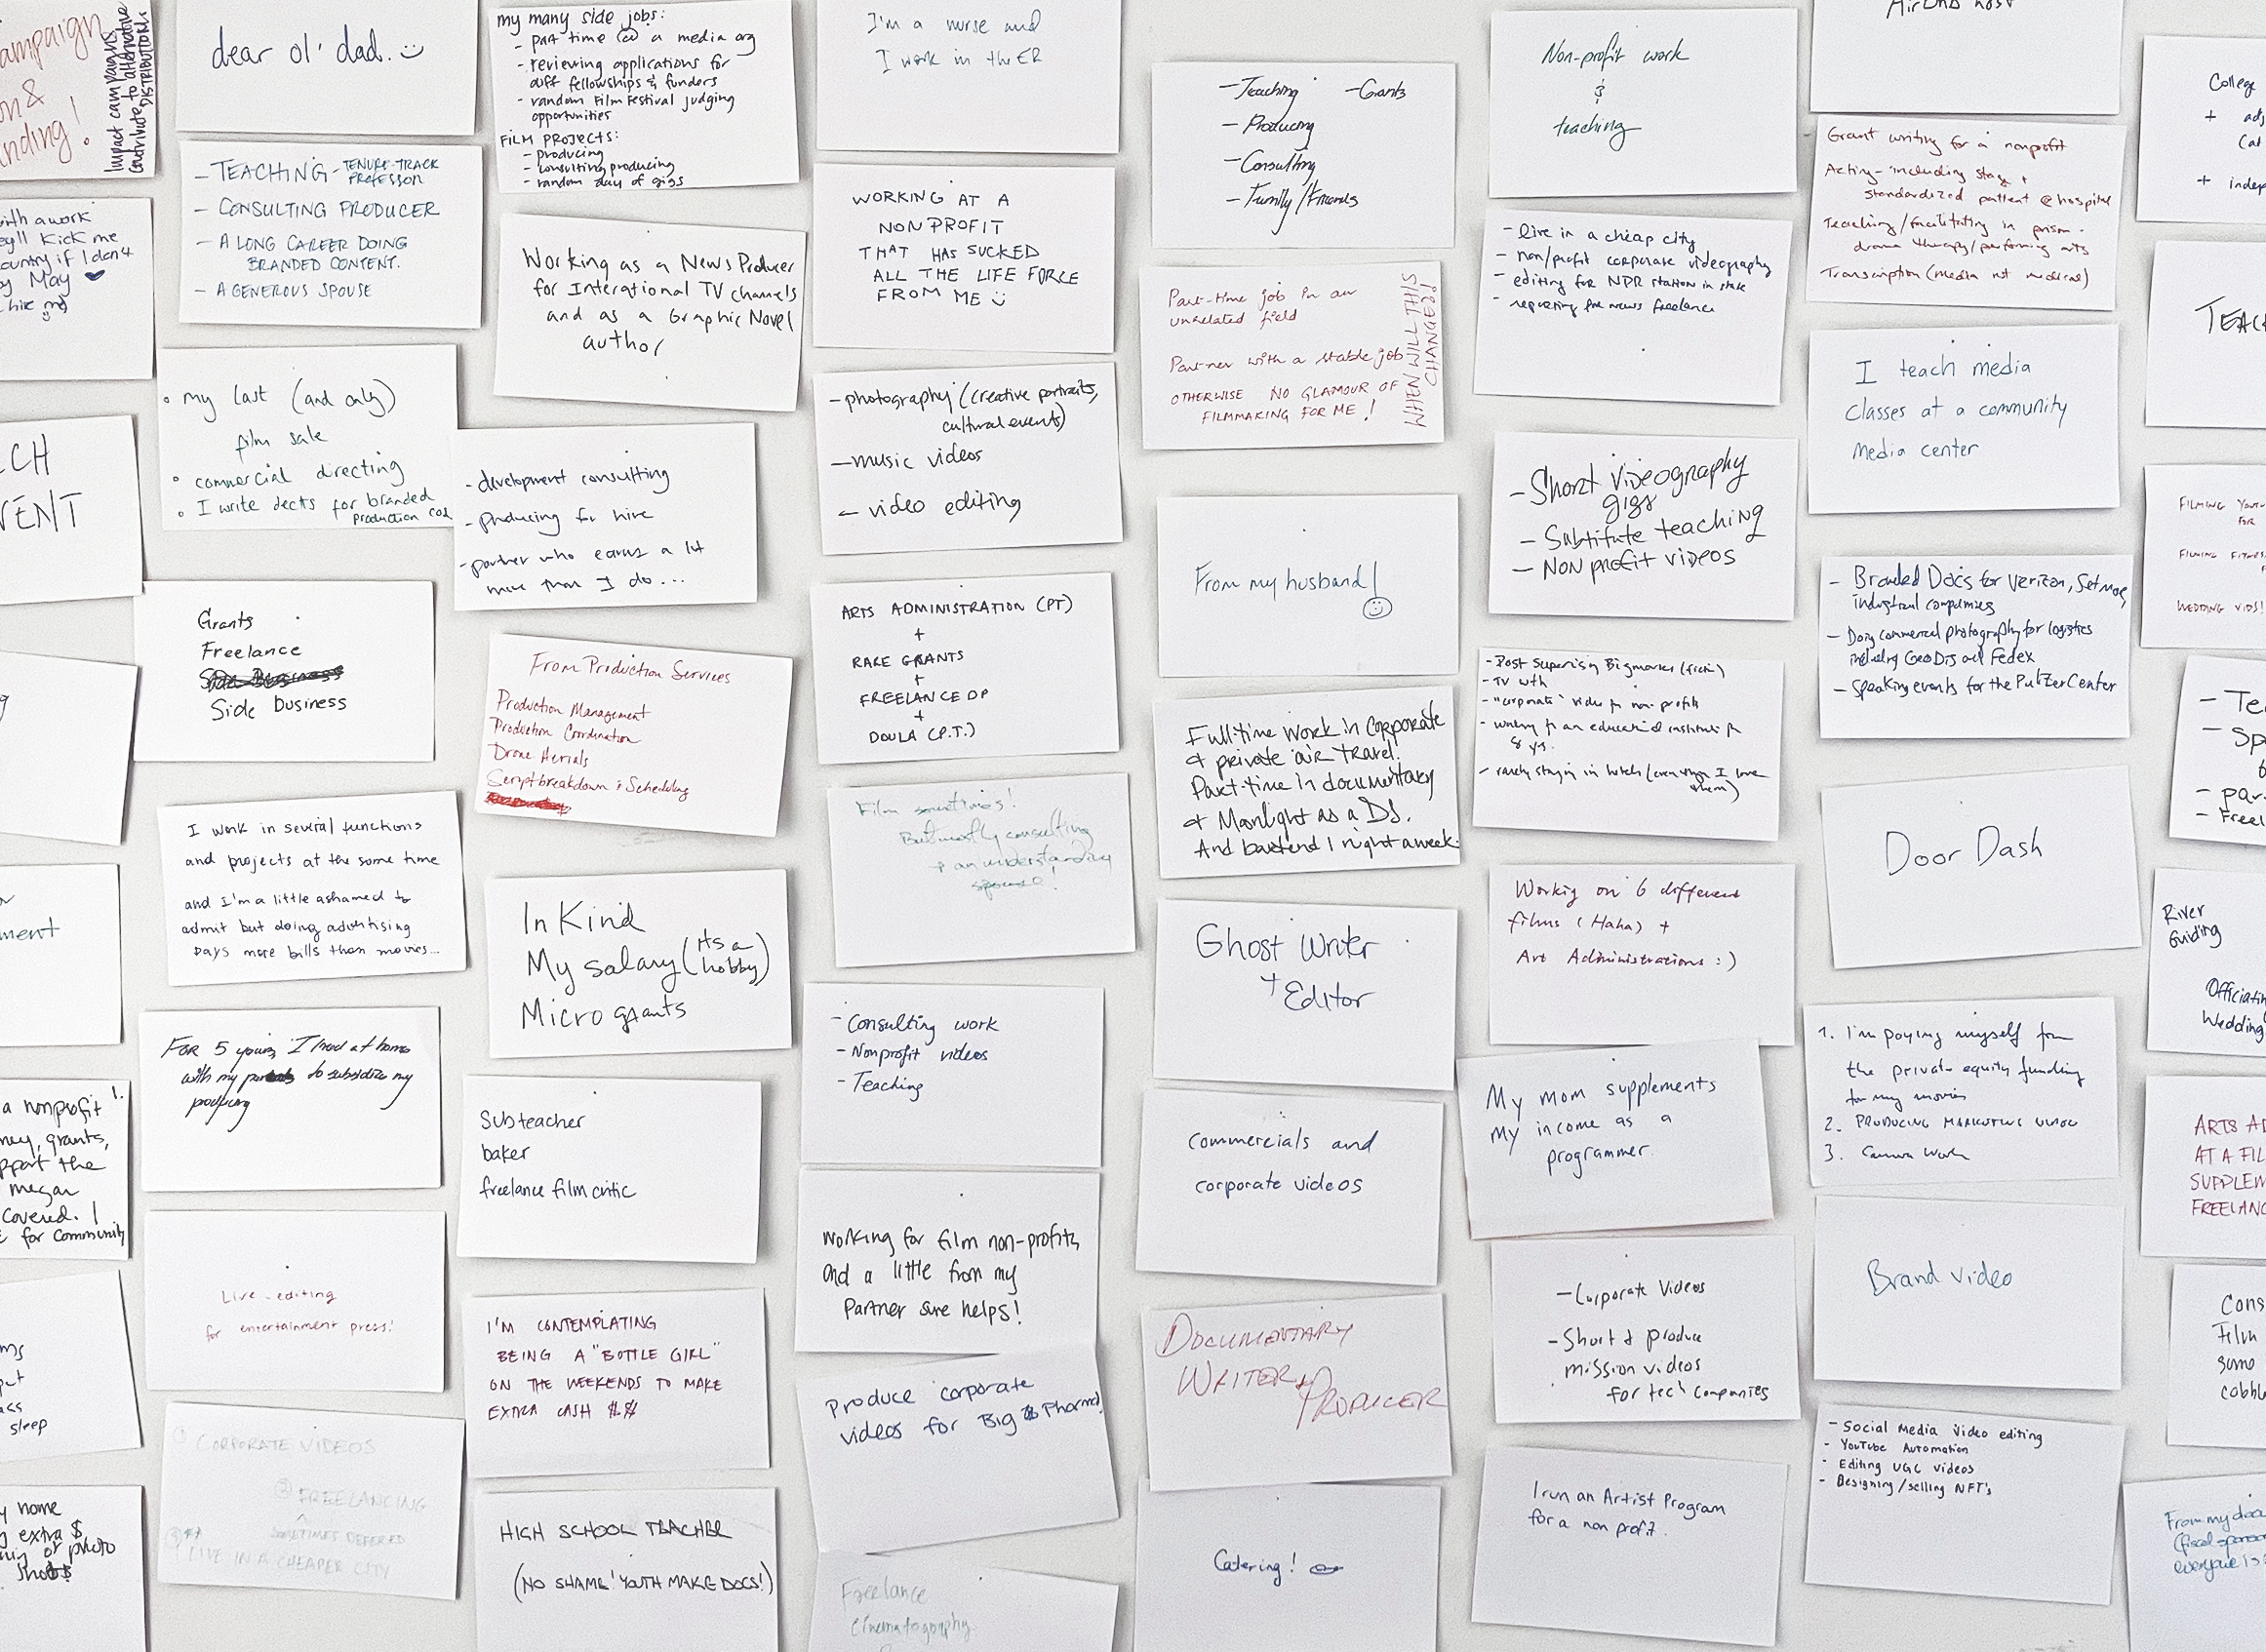 ampaign
n &
nding!
Impact campaigns
contribute to alternative
DISTRIBUTORS
with a work
ey'll kick me
country if I don't
by May
hire me)
CH
VENT
ment
a nonprofit
ney, grants,
pport the
megan
covered. I
for community
ms
put
ass
sleep
y home
g extra $
of photo
shoots
dear ol' dad.. :)
- TEACHING - TENURE-TRACK
PROFESSOR
- CONSULTING PRODUCER
- A LONG CAREER DOING
BRANDED CONTENT.
- A GENEROUS SPOUSE
• my last (and only)
film sale
• commercial directing
• I write decks for branded
production cos
Grants
Freelance
Side Business
Side business
I work in several functions
and projects at the same time
and I'm a little ashamed to
admit but doing advertising
pays more bills than movies...
FOR 5 years, I lived at home
with my parents to subsidize my
producing
Live-editing
for entertainment press!
① CORPORATE VIDEOS
② FREELANCING
^
SOMETIMES DEFERED
③ LIVE IN A CHEAPER CITY
my many side jobs:
- part time @ a media org
- reviewing applications for
diff fellowships & funders
- random Film Festival judging
opportunities
FILM PROJECTS:
- producing
- consulting producing
- random day of gigs
Working as a News Producer
for Interational TV channels
and as a Graphic Novel
author
- development consulting
- producing for hire
- partner who earns a lot
more than I do...
From Production Services
Production Management
Production Coordination
Drone Aerials
Script breakdown & Scheduling
In Kind
My salary (its a
hobby)
Micro grants
Sub teacher
baker
freelance film critic
I'M CONTEMPLATING
BEING A "BOTTLE GIRL"
ON THE WEEKENDS TO MAKE
EXTRA CASH $$
HIGH SCHOOL TEACHER
(NO SHAME! YOUTH MAKE DOCS!)
I'm a nurse and
I work in the ER
WORKING AT A
NON PROFIT
THAT HAS SUCKED
ALL THE LIFE FORCE
FROM ME :)
- photography (creative portraits,
cultural events)
- music videos
- video editing
ARTS ADMINISTRATION (PT)
+
RARE GRANTS
+
FREELANCE DP
+
DOULA (P.T.)
Film sometimes!
But mostly consulting
+ an understanding
spouse!
- Consulting work
- Nonprofit videos
- Teaching
working for film non-profits
and a little from my
Partner sure helps!
Produce corporate
videos for Big Pharma!
Freelance
cinematography
- Teaching - Grants
- Producing
- Consulting
- Family/Friends
Part-time job in an
unrelated field
Partner with a stable job
OTHERWISE NO GLAMOUR OF
FILMMAKING FOR ME!
WHEN WILL THIS
CHANGE?!
From my husband!
Full-time work in corporate
& private air travel.
Part-time in documentary
& Moonlight as a DJ.
And bartend 1 night a week.
Ghost Writer
+ Editor
commercials and
corporate videos
DOCUMENTARY
WRITER & PRODUCER
Catering!
Non-profit work
&
teaching
- live in a cheap city
- non/profit corporate videography
- editing for NPR station in state
- reporting for news freelance
- Short videography
gigs
- Subtitute teaching
- Non profit videos
- Post Supervising
- TV
- "corporate" video for non-profits
- working for an educational institute for
8 yrs.
- rarely staying in hotels (even though I love
them)
Working on 6 different
films (Haha) +
Art Administrations :)
My mom supplements
my income as a
programmer.
- Corporate Videos
- Short & produce
mission videos
for tech companies
I run an Artist Program
for a non profit.
AirBnB host
Grant writing for a nonprofit
Acting - including stage +
standardized patient @ hospital
Teaching/facilitating in prison -
drama therapy/performing arts
Transcription (media not medical)
I teach media
classes at a community
media center
- Branded Docs for Verizon,
industrial companies
- Doing commercial photography for logistics
including GeoDis and Fedex
- Speaking events for the Pulitzer Center
Door Dash
1. I'm paying myself from
the private equity funding
for my movies
2. PRODUCING MARKETING VIDEO
3. Camera Work
Brand video
- Social Media Video editing
- YouTube Automation
- Editing UGC videos
- Designing/selling NFT's
College
+ adj
Cat
+ indep
TEAC
FILMING YOUT
FOR
FILMING FITNES
WEDDING VIDS!
- Te
- Sp
- par
- Freel
River
Guiding
Officiatin
Wedding
ARTS AD
AT A FIL
SUPPLEM
FREELANC
Cons
Film
some
cobbl
From my
(fiscal sponsor
everyone is